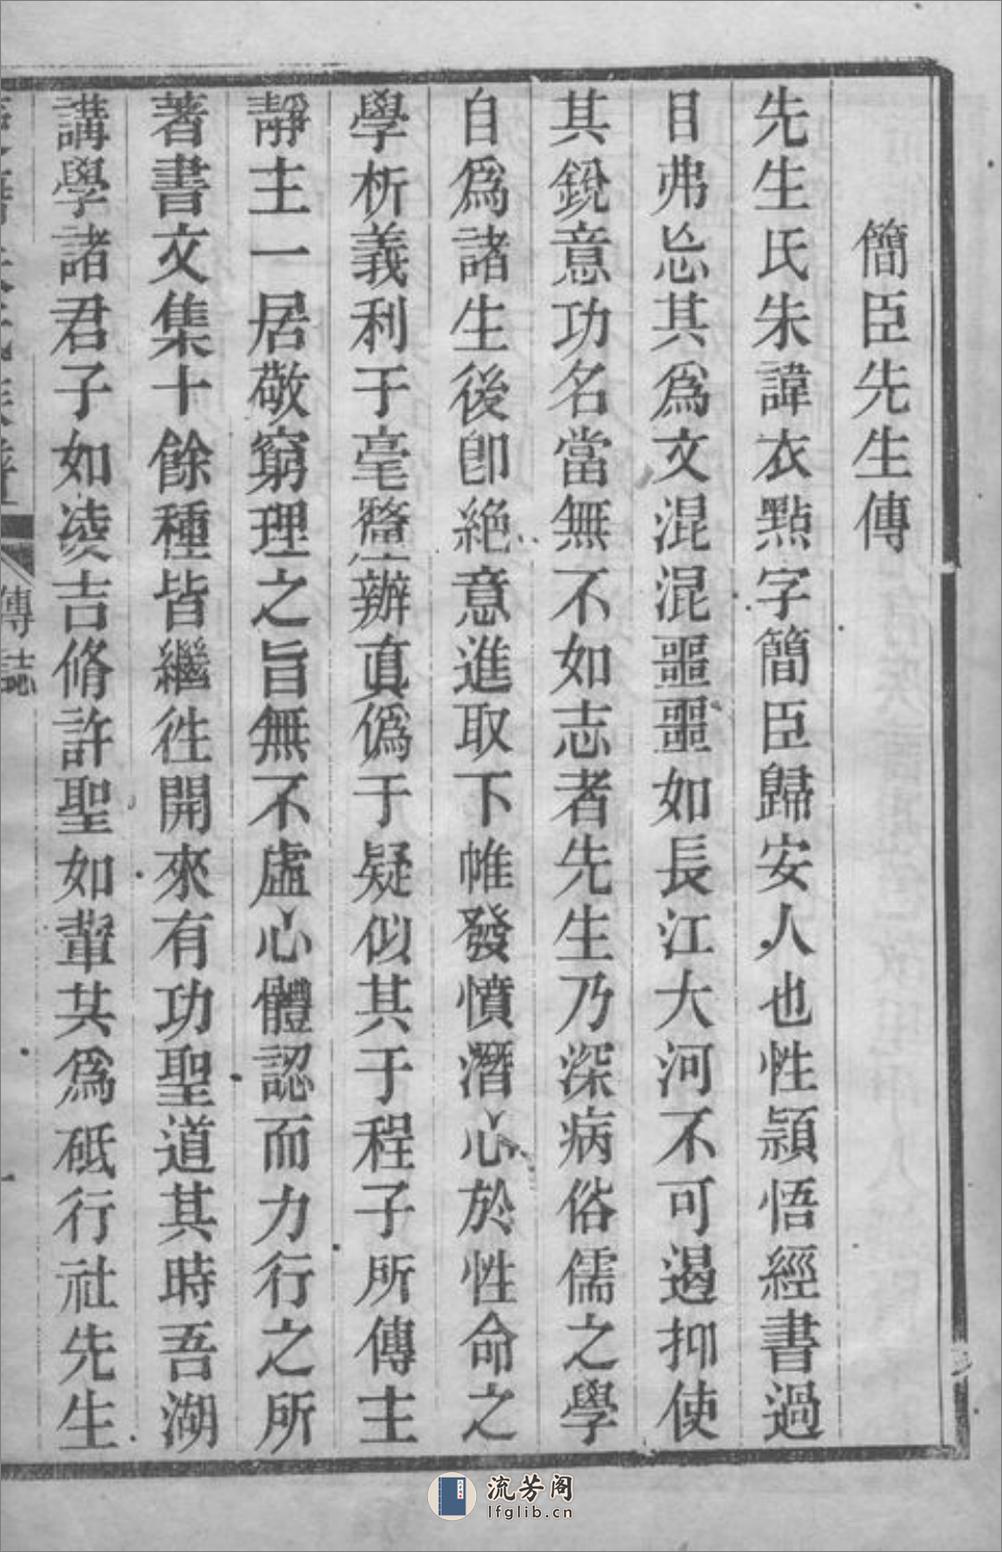 簡臣先生傳
先生氏朱諱衣點字簡臣歸安人也性頴悟經書過
目弗忘其爲文混混噩噩如長江大河不可遏抑使
其銳意功名當無不如志者先生乃深病俗儒之學
自爲諸生後卽絶意進取下帷發憤潛心於性命之
學析義利于毫釐辦眞僞于疑似其于程子所傳主
靜主一居敬窮理之旨無不虛心體認而力行之所
著書文集十餘種皆繼徃開來有功聖道其時吾湖
講學諸君子如凌吉脩許聖如輩共爲砥行社先生
傳誌
一
流芳阁
lfglib.cn